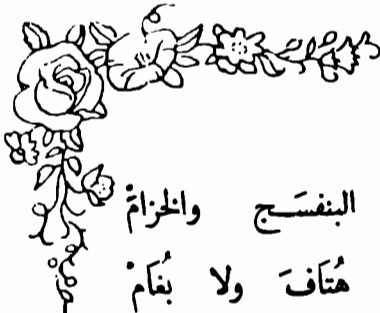 البنفسَج والخزامْ
هُتَافَ ولا بُغَامْ